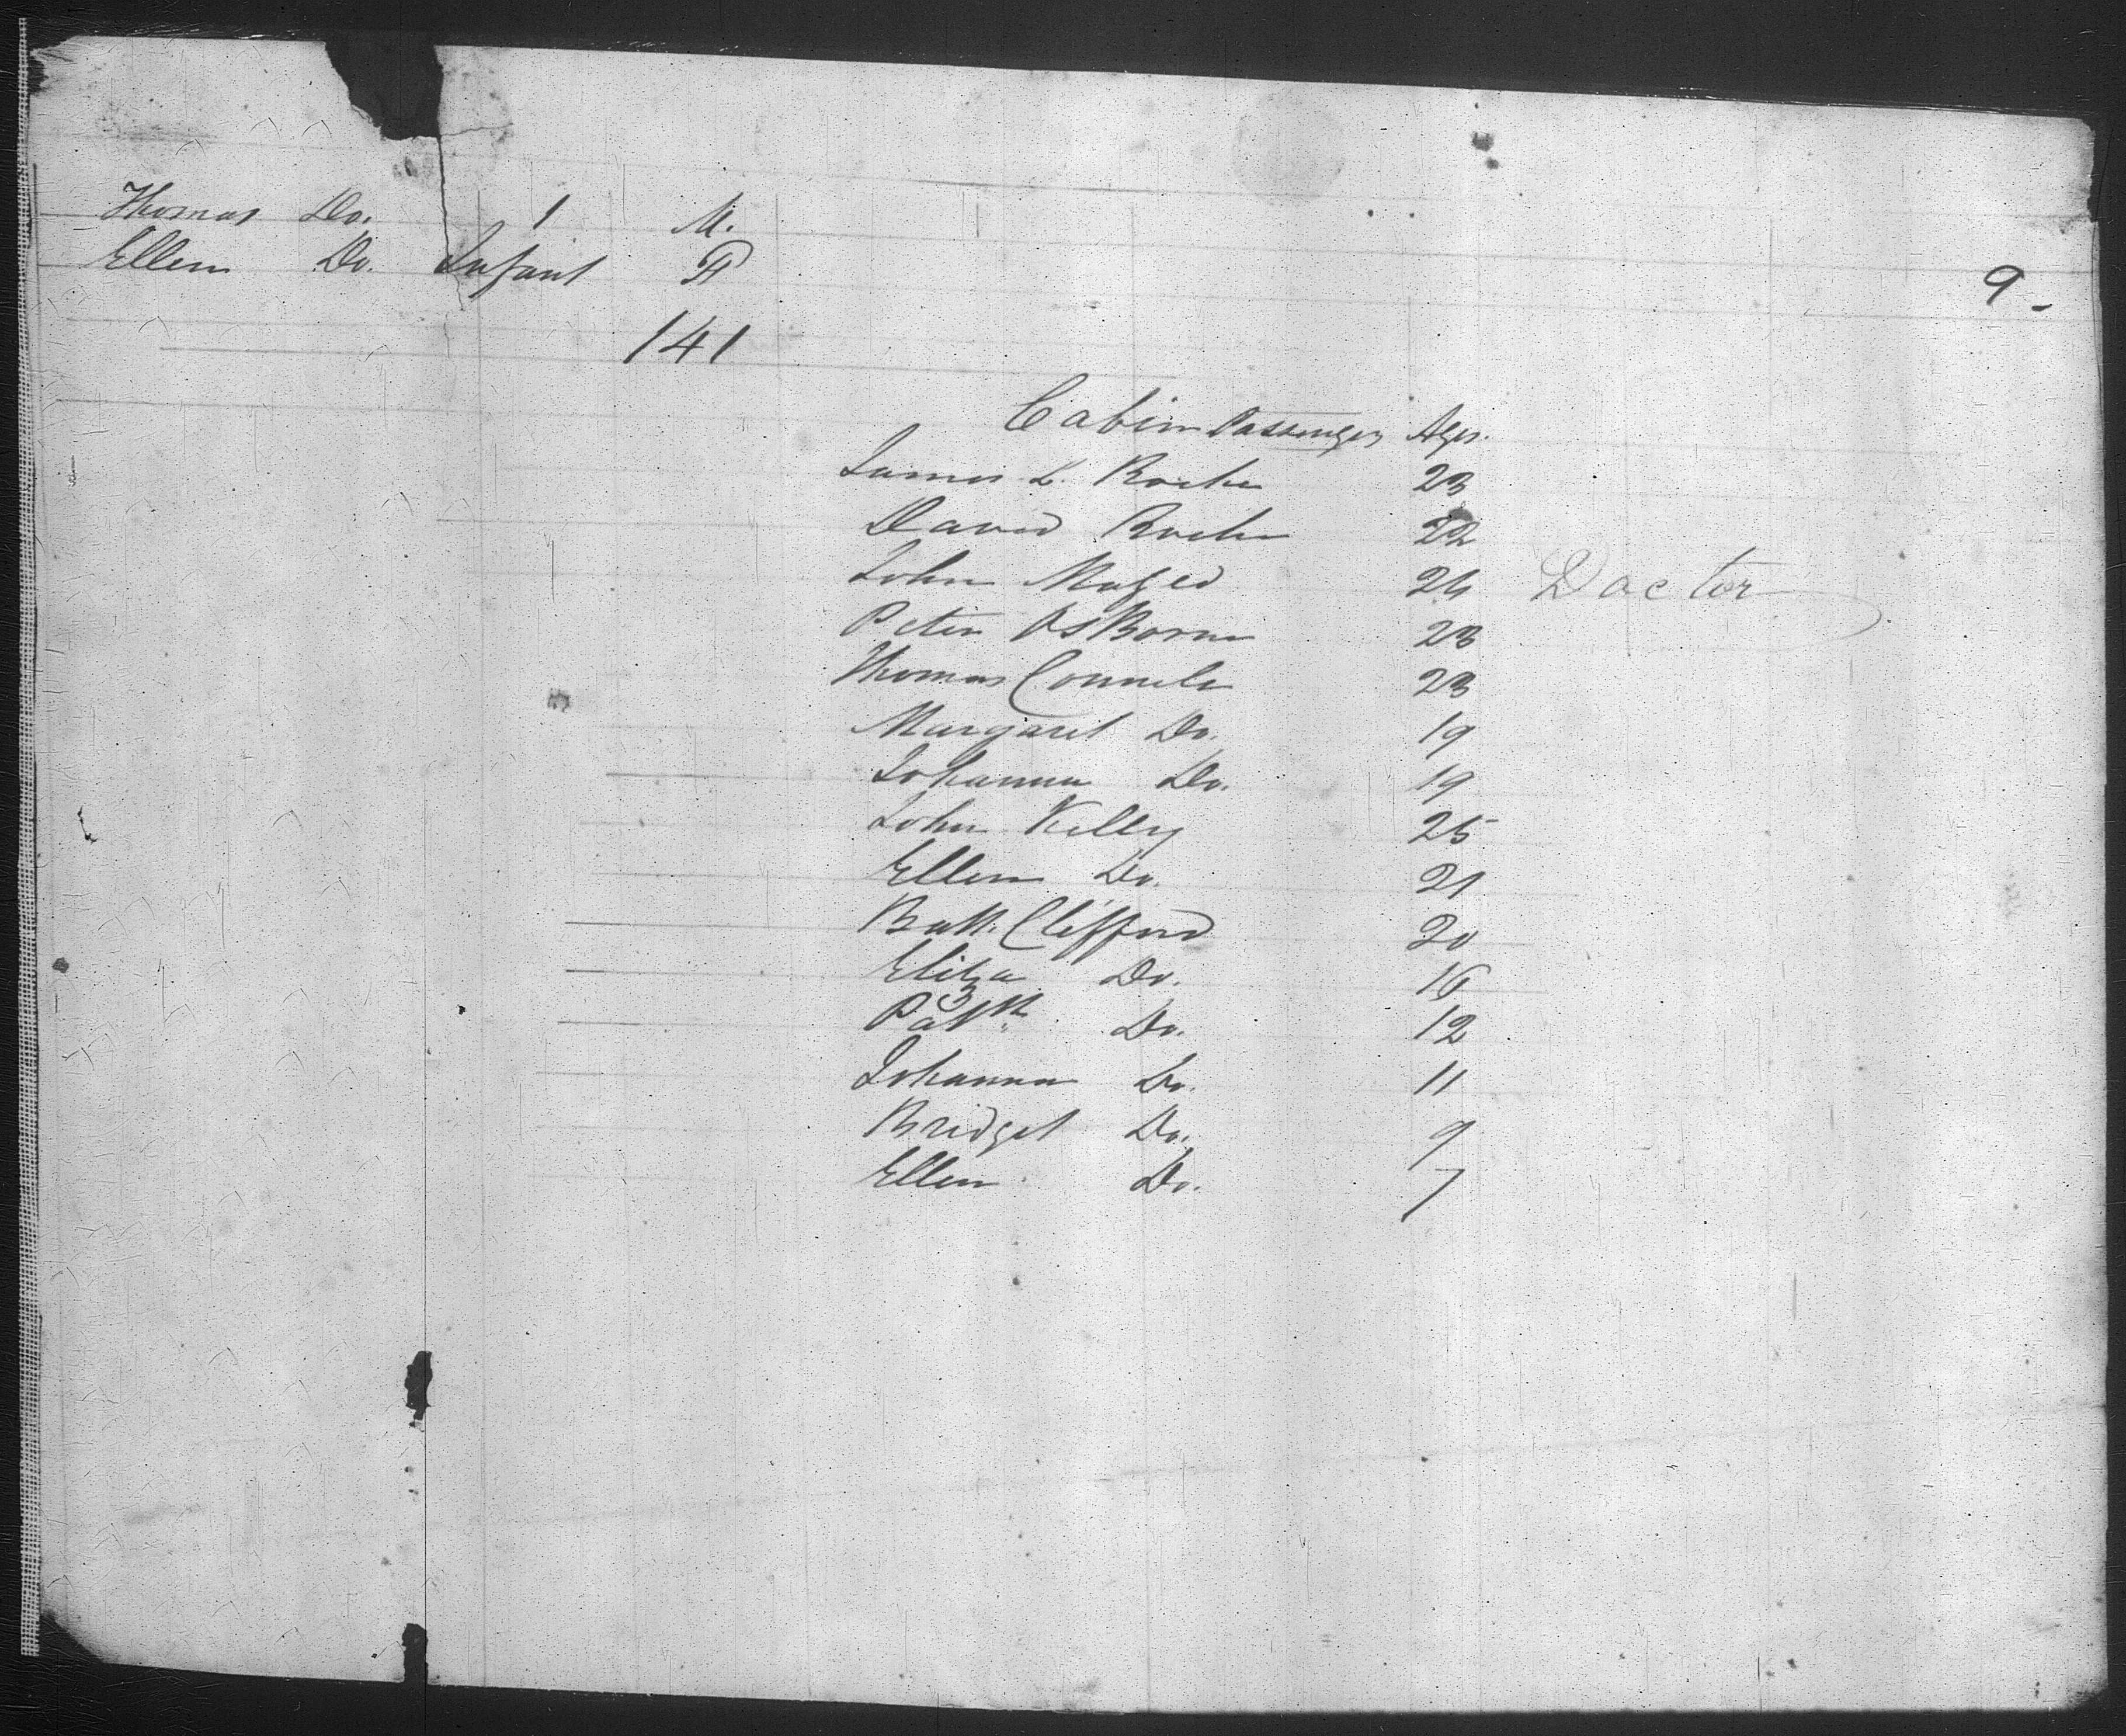 Thomas Do. 1 M.
Ellen Do. Infant F
9 -
141
Cabin Passengers Ages.
James L. Roche 23
David Roche 22
John 24 Doctor
Peter OsBorne 23
Thomas 23
Margaret Do. 19
Johanna Do. 19
John Kelly 25
Ellen Do. 21
Batt. Clifford 20
Eliza Do. 16
Patk. Do. 12
Johanna Do. 11
Bridget Do. 9
Ellen Do. 7